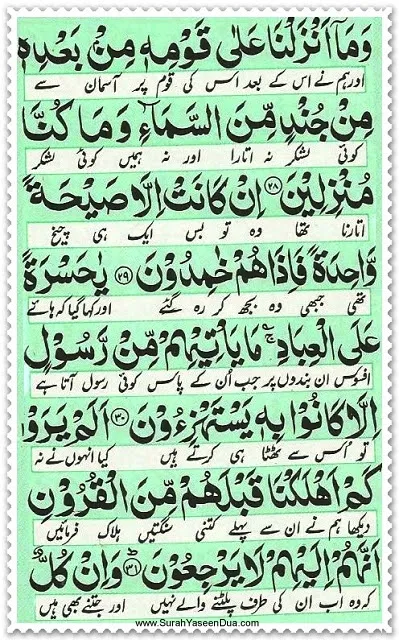 وَمَاۤ اَنْزَلْنَا عَلٰى قَوْمِهٖ مِنْۢ بَعْدِهٖ
اور ہم نے اس کے بعد اس کی قوم پر آسمان سے
مِنْ جُنْدٍ مِّنَ السَّمَآءِ وَمَا كُنَّا
کوئی لشکر نہ اتارا اور نہ ہمیں کوئی لشکر
مُنْزِلِيْنَ ۲۸ اِنْ كَانَتْ اِلَّا صَيْحَةً
اتارنا تھا وہ تو بس ایک ہی چیخ
وَّاحِدَةً فَاِذَا هُمْ خٰمِدُوْنَ ۲۹ يٰحَسْرَةً
تھی جبھی وہ بجھ کر رہ گئے اور کہا گیا کہ ہائے
عَلَى الْعِبَادِ ۚ مَا يَاْتِيْهِمْ مِّنْ رَّسُوْلٍ
افسوس ان بندوں پر جب اُن کے پاس کوئی رسول آتا ہے
اِلَّا كَانُوْا بِهٖ يَسْتَهْزِءُوْنَ ۳۰ اَلَمْ يَرَوْا
تو اُس سے ٹھٹھا ہی کرتے ہیں کیا انہوں نے نہ
كَمْ اَهْلَكْنَا قَبْلَهُمْ مِّنَ الْقُرُوْنِ
دیکھا ہم نے ان سے پہلے کتنی سنگتیں ہلاک فرمائیں
اَنَّهُمْ اِلَيْهِمْ لَا يَرْجِعُوْنَ ۳۱ وَاِنْ كُلٌّ
کہ وہ اب ان کی طرف پلٹنے والے نہیں اور جتنے بھی ہیں
www.SurahYaseenDua.com